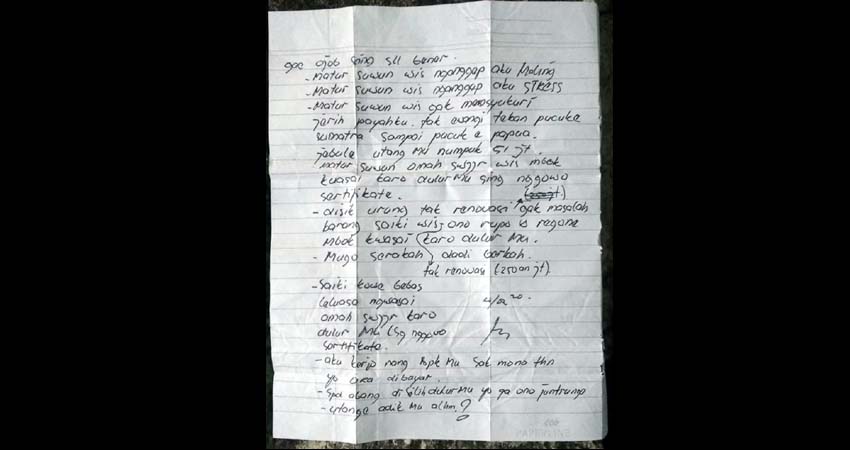 sing sll benar.
- Matur suwun wis nganggap aku Maling
- Matur suwun wis nganggap aku STRESS
- Matur suwun wis gak mensyukuri
jerih payahku. tak ewangi tekan pucuke
sumatra sampai pucuk e papua.
jabule utang Mu numpuk 51 jt.
Matur suwun omah swjjr wis mbok
kuasai karo dulur Mu sing nggowo
sertifikate.
- disik urung tak renovasi gak masalah
barang saiki wis ono rupo & regane
Mbok kwasai karo dulur Mu.
- Mugo serakah dadi berkah.
tak renovasi (250an jt).
- Saiki kowe bebas
leluasa nguasai
omah swjjr karo
dulur Mu (sg nggowo
sertifikate.
- aku kerjo nang Mu sak mono thn
yo ora dibayar.
- Spd abang di silih dulur Mu yo ga ono juntrunge
- utange adik Mu
PAPERLINE